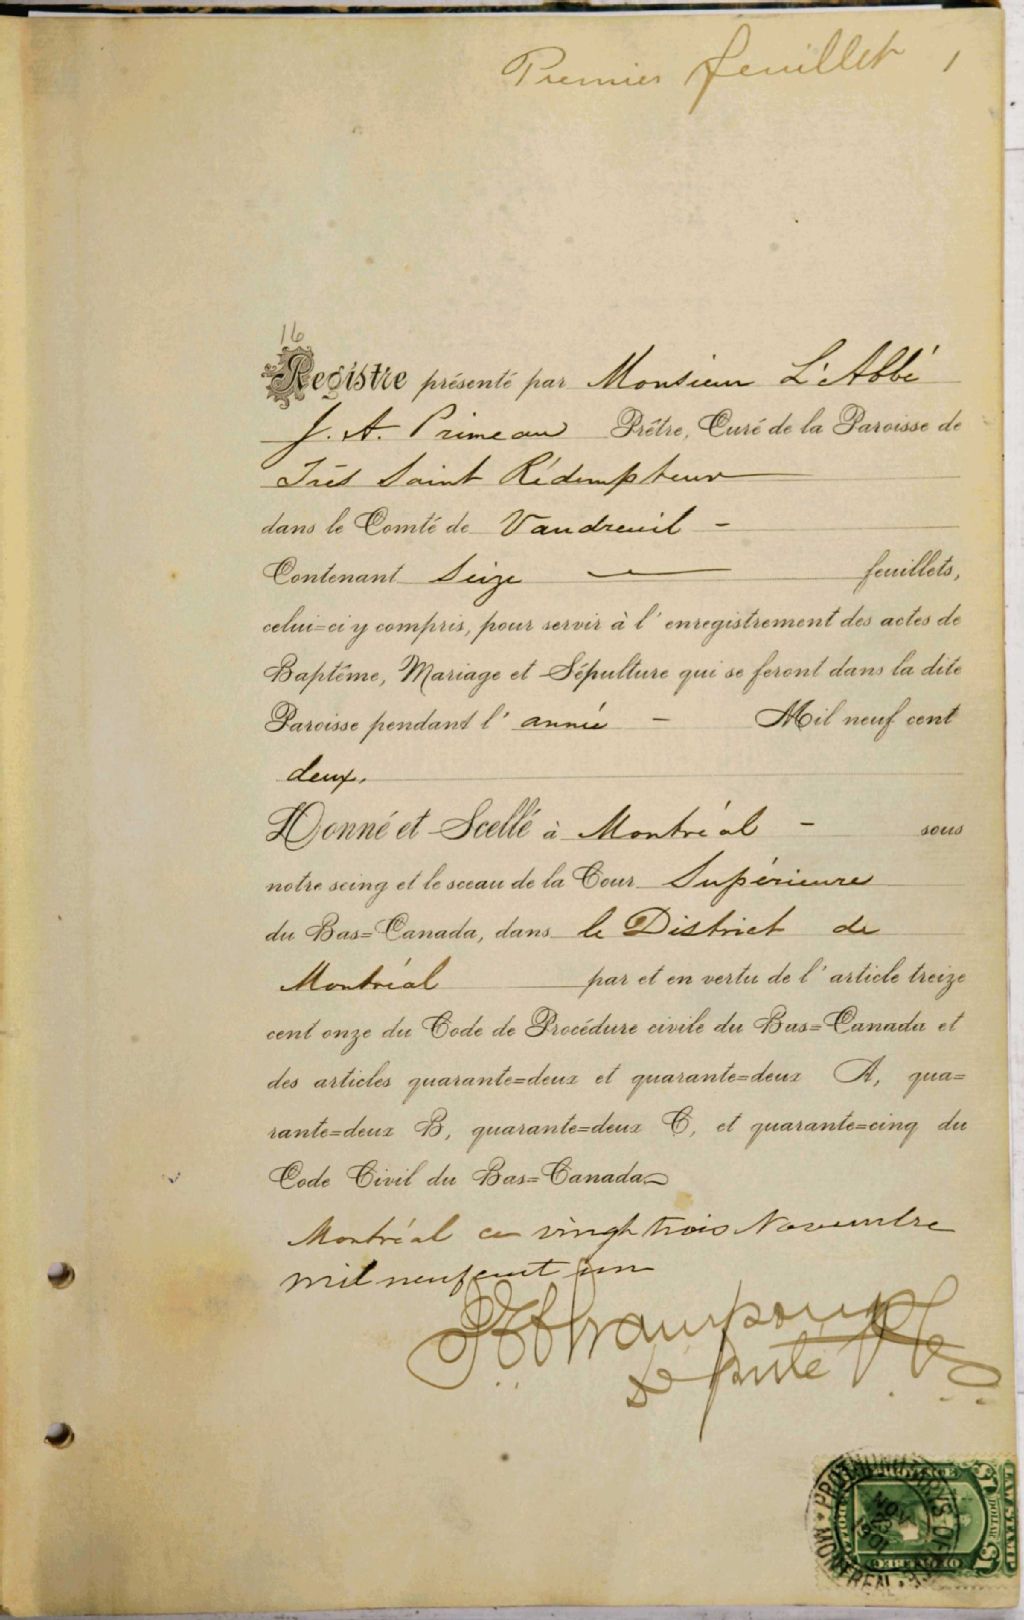 Premier feuillet 1
16
Registre présenté par Monsieur L'Abbé
J. A. Primeau Prêtre, Curé de la Paroisse de
Très Saint Rédempteur
dans le Comté de Vaudreuil -
Contenant Seize — feuillets,
celui=ci y compris, pour servir à l'enregistrement des actes de
Baptême, Mariage et Sépulture qui se feront dans la dite
Paroisse pendant l'année - Mil neuf cent
deux.
Donné et Scellé à Montréal - sous
notre seing et le sceau de la Cour Supérieure
du Bas=Canada, dans le District de
Montréal par et en vertu de l'article treize
cent onze du Code de Procédure civile du Bas=Canada et
des articles quarante=deux et quarante=deux A, qua=
rante=deux B, quarante=deux C, et quarante=cinq du
Code Civil du Bas=Canada
Montréal ce vingt trois Novembre
mil neuf cent un
Député
PROTHONOTARY'S OFFICE MONTREAL
NOV 23 1901
LAW STAMP
$1 DOLLAR $1